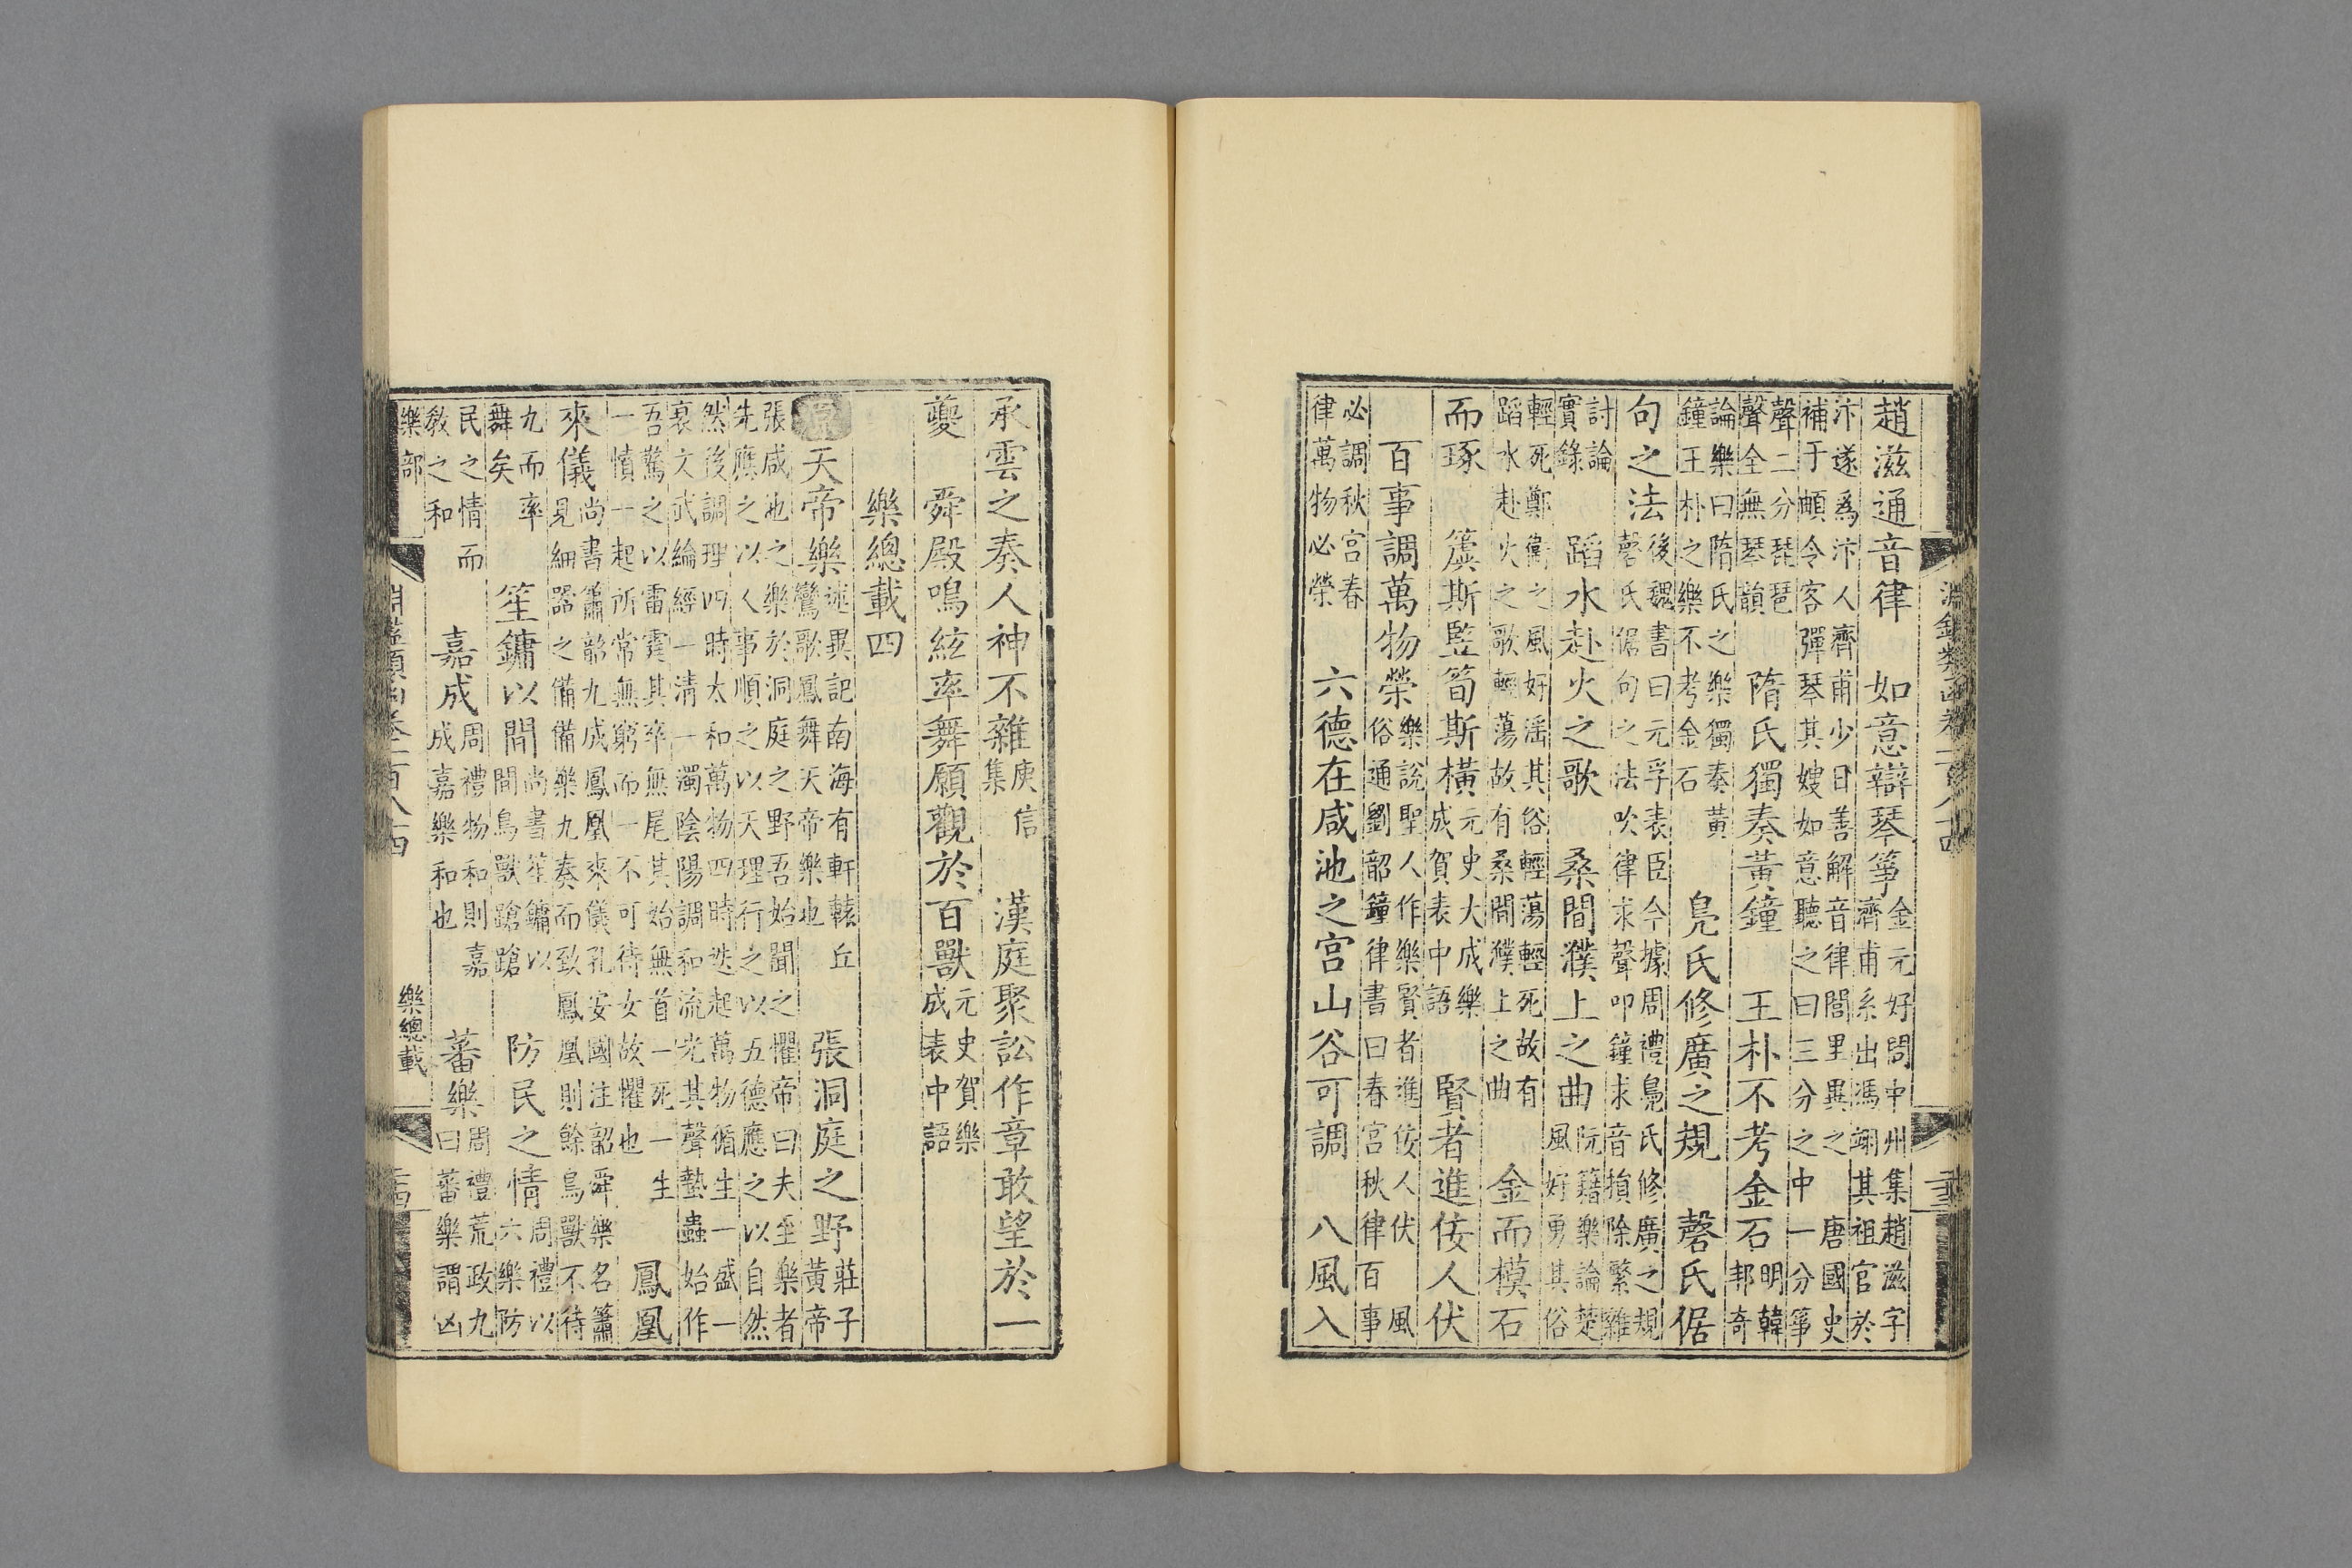 趙滋通音律 如意辯琴箏 金元好問中州集趙滋字
濟甫系出馮翊其祖官於
汴遂爲汴人齊甫少日善解音律閭里異之 唐國史
補于頔令客彈琴其嫂如意聽之曰三分之中一分箏
聲二分琵琶
聲全無琴韻 隋氏獨奏黃鐘 王朴不考金石 明韓
邦奇
論樂曰隋氏之樂獨奏黃
鐘王朴之樂不考金石 鳧氏修廣之規 磬氏倨
句之法 後魏書曰元孚表臣今據周禮鳧氏修廣之規
磬氏倨句之法吹律求聲叩鐘求音損除繁雜
討論
實錄 蹈水赴火之歌 桑間濮上之曲 阮籍樂論楚
風好勇其俗
輕死鄭衛之風好淫其俗輕蕩輕死故有
蹈水赴火之歌輕蕩故有桑間濮上之曲 金而模石
而琢 簴斯竪筍斯橫 元史大成樂
成賀表中語 賢者進佞人伏
百事調萬物榮 樂說聖人作樂賢者進佞人伏 風
俗通劉韶鐘律書曰春宮秋律百事
必調秋宮春
律萬物必榮 六德在咸池之宮山谷可調 八風入
承雲之奏人神不雜 庾信
集 漢庭聚訟作章敢望於一
夔 舜殿鳴絃率舞願觀於百獸 元史賀樂
成表中語
樂總載四
原天帝樂 述異記南海有軒轅丘
鸞歌鳳舞天帝樂也 張洞庭之野 莊子
黃帝
張咸池之樂於洞庭之野吾始聞之懼帝曰夫至樂者
先應之以人事順之以天理行之以五德應之以自然
然後調理四時太和萬物四時迭起萬物循生一盛一
衰文武綸經一清一濁陰陽調和流光其聲蟄蟲始作
吾驚之以雷霆其卒無尾其始無首一死一生
一僨一起所常無窮而一不可待女故懼也 鳳凰
來儀 尚書簫韶九成鳳凰來儀孔安國注韶舜樂名簫
見細器之備備樂九奏而致鳳凰則餘鳥獸不待
九而率
舞矣 笙鏞以間 尚書笙鏞以
間鳥獸蹌蹌 防民之情 周禮以
六樂防
民之情而
敎之和 嘉成 周禮物和則嘉
成嘉樂和也 蕃樂 周禮荒政九
曰蕃樂謂凶
樂部
樂總載